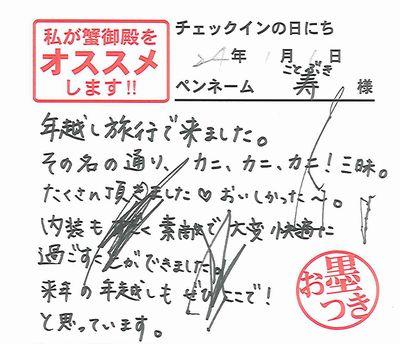 私が蟹御殿を
オススメ
します!!
チェックインの日にち
年 月 日
ことぶき
ペンネーム 寿 様
年越し旅行で来ました。
その名の通り、カニ、カニ、カニ!三昧。
たくさん頂きました♡おいしかった〜。
内装も 素敵で大変快適に
過ごすことができました。
来年の年越しもぜひここで!
と思っています。
お墨つき